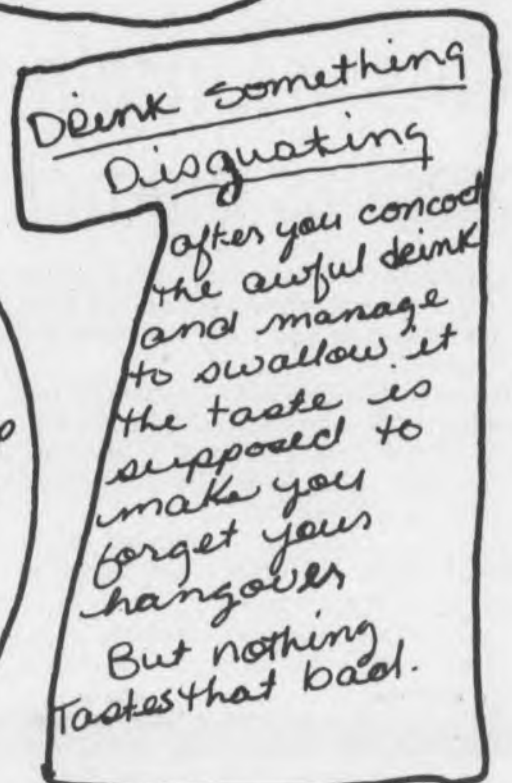 Drink something
Disgusting
after you concoct
the awful drink
and manage
to swallow it
the taste is
supposed to
make you
forget your
hangover
But nothing
Tastes that bad.